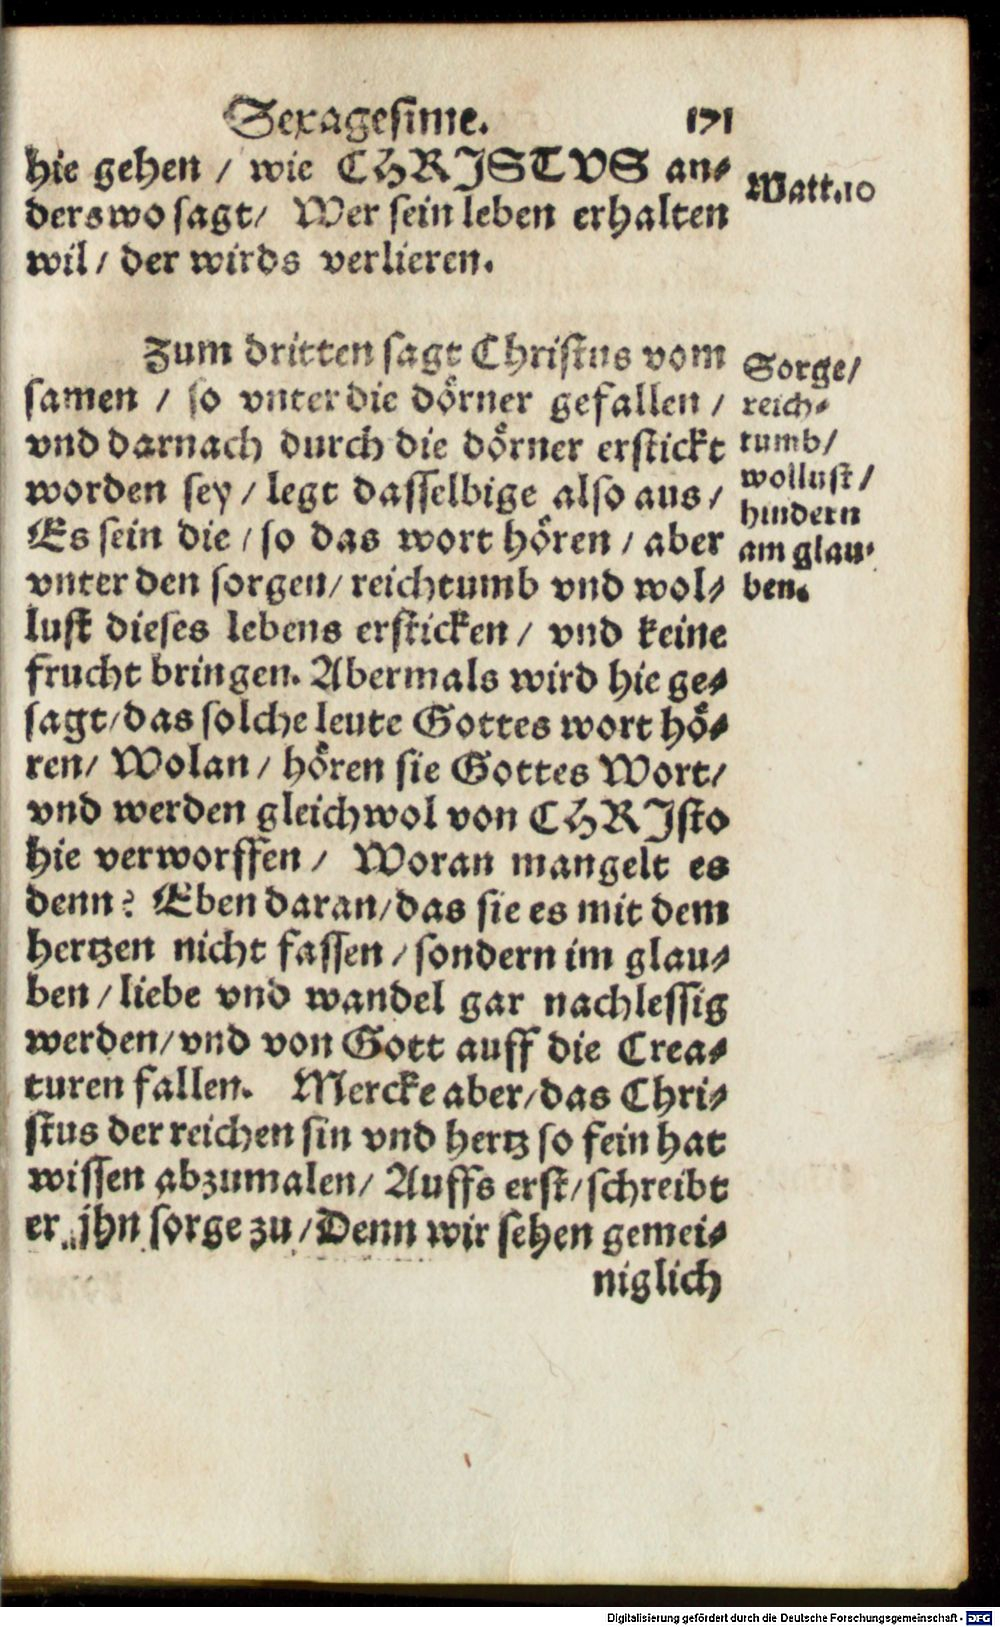 Sexagesime. 171
hie gehen / wie CHRJSTVS an-
derswo sagt / Wer sein leben erhalten
wil / der wirds verlieren.
Matt.10
Zum dritten sagt Christus vom
samen / so vnter die dörner gefallen /
vnd darnach durch die dörner erstickt
worden sey / legt dasselbige also aus /
Es sein die / so das wort hören / aber
vnter den sorgen / reichtumb vnd wol-
lust dieses lebens ersticken / vnd keine
frucht bringen. Abermals wird hie ge-
sagt / das solche leute Gottes wort hö-
ren / Wolan / hören sie Gottes Wort /
vnd werden gleichwol von CHRJsto
hie verworffen / Woran mangelt es
denn? Eben daran / das sie es mit dem
hertzen nicht fassen / sondern im glau-
ben / liebe vnd wandel gar nachlessig
werden / vnd von Gott auff die Crea-
turen fallen. Mercke aber / das Chri-
stus der reichen sin vnd hertz so fein hat
wissen abzumalen / Auffs erst / schreibt
er jhn sorge zu / Denn wir sehen gemei-
niglich
Sorge /
reich-
tumb /
wollust /
hindern
am glau-
ben.
Digitalisierung gefördert durch die Deutsche Forschungsgemeinschaft - DFG